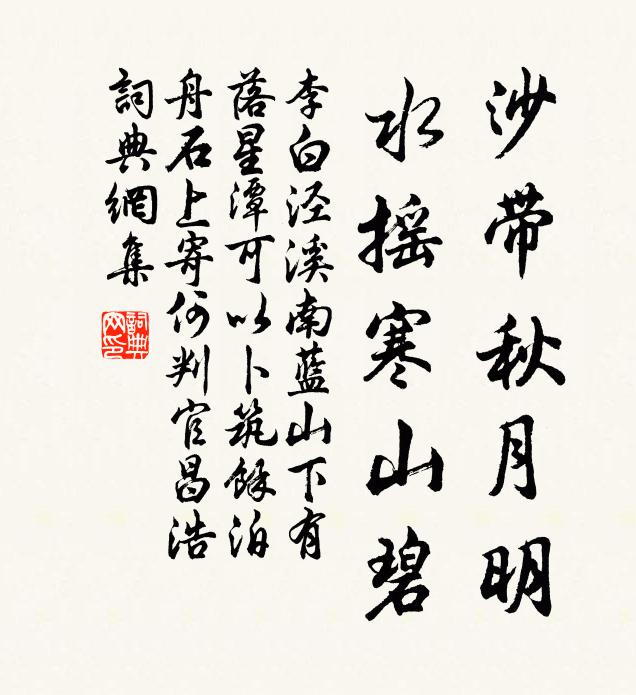 沙带秋月明
水摇寒山碧
李白泾溪南蓝山下有
落星潭可以卜筑餘泊
舟石上寄何判官昌浩
詞典網集
詞典
网印